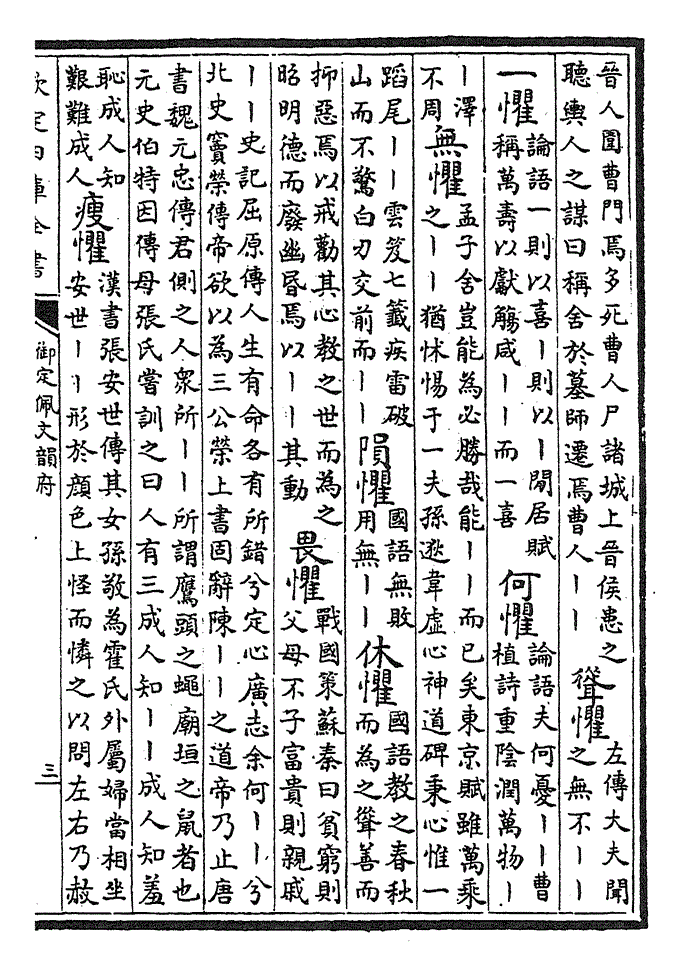 晉人圍曹門焉多死曹人尸諸城上晉侯患之
聽輿人之謀曰稱舍於墓師遷焉曹人｜｜
聳懼
左傳大夫聞
之無不｜｜
一懼
論語一則以喜｜則以｜閒居賦
稱萬壽以獻觴咸｜｜而一喜
何懼
論語夫何憂｜｜曹
植詩重陰潤萬物｜
｜澤
不周
無懼
孟子舍豈能為必勝哉能｜｜而已矣東京賦雖萬乘
之｜｜猶怵惕于一夫孫逖韋虛心神道碑秉心惟一
蹈尾｜｜雲笈七籤疾雷破
山而不驚白刃交前而｜｜
隕懼
國語無敗
用無｜｜
休懼
國語教之春秋
而為之聳善而
抑惡焉以戒勸其心教之世而為之
昭明德而廢幽昬焉以｜｜其動
畏懼
戰國策蘇秦曰貧窮則
父母不子富貴則親戚
｜｜史記屈原傳人生有命各有所錯兮定心廣志余何｜｜兮
北史竇榮傳帝欲以為三公榮上書固辭陳｜｜之道帝乃止唐
書魏元忠傳君側之人衆所｜｜所謂鷹頭之蠅廟垣之鼠者也
元史伯特因傳母張氏嘗訓之曰人有三成人知｜｜成人知羞
恥成人知
艱難成人
瘦懼
漢書張安世傳其女孫敬為霍氏外屬婦當相坐
安世｜｜形於顔色上怪而憐之以問左右乃赦
欽定四庫全書
御定佩文韻府
三